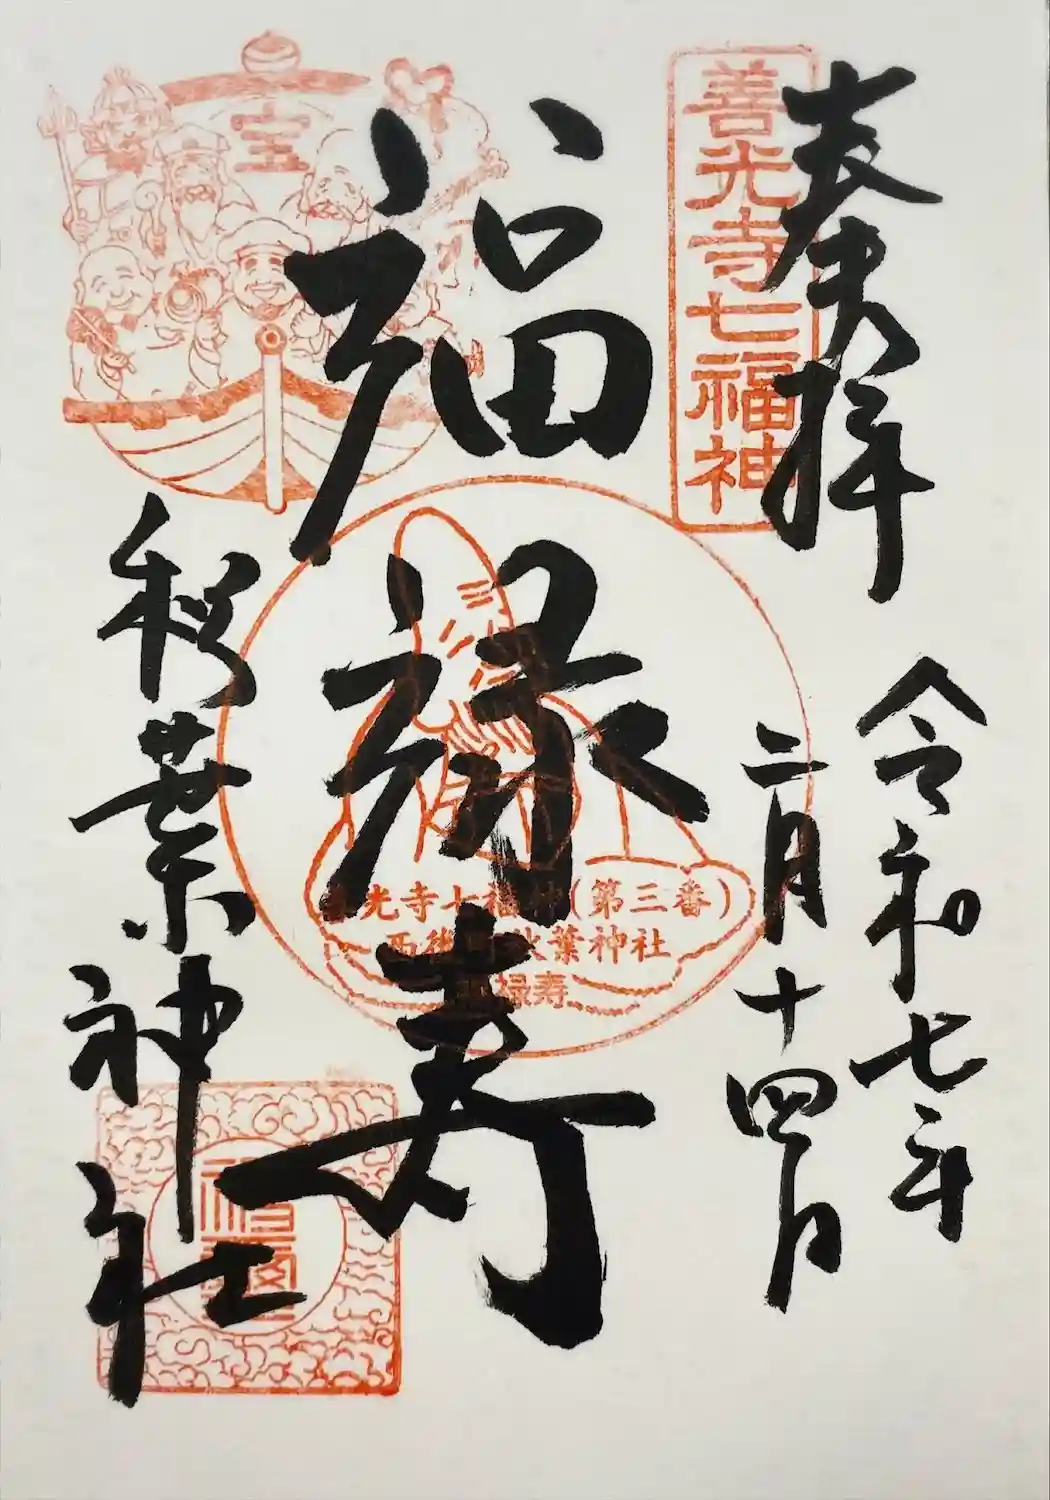 奉拝
令和七年
二月十四日
福禄寿
秋葉神社
善光寺七福神
宝
光寺七福神(第三番)
秋葉神社
禄寿